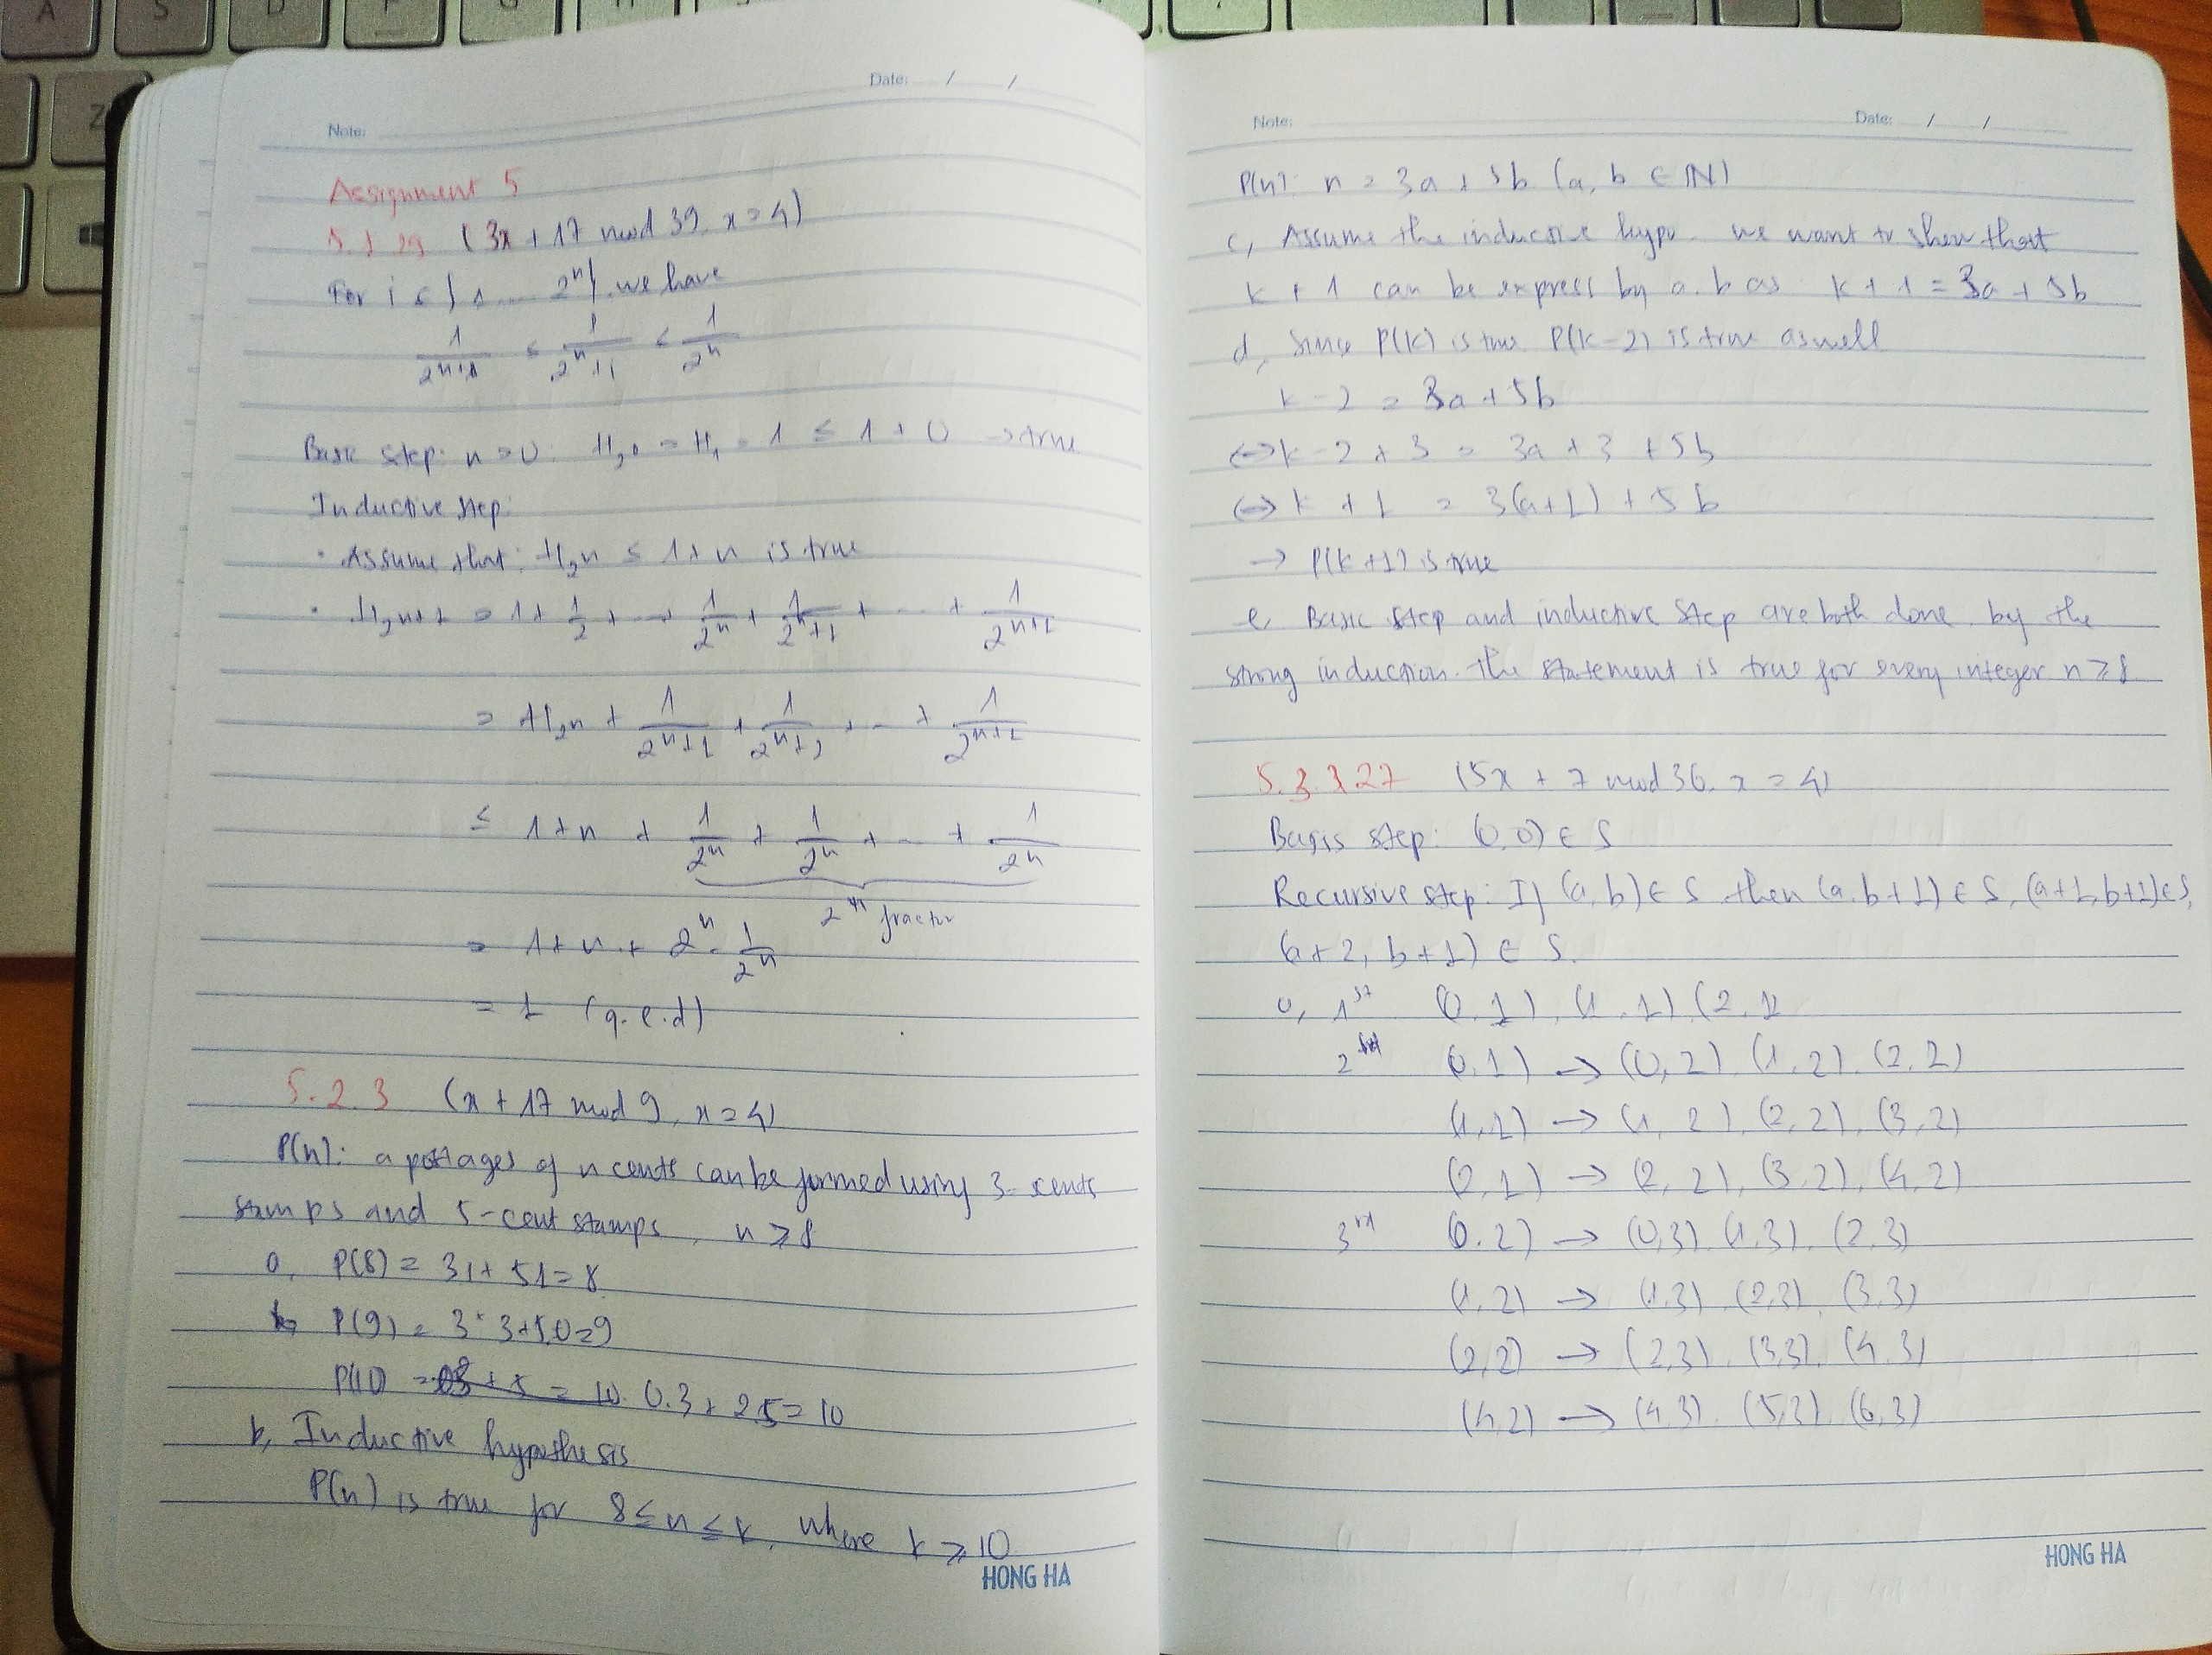 A S D F G H
Z
Date: / /
Note:
Assignment 5
5.1.29 (3x + 17 mod 39, x = 4)
For i ∈ {1 ... 2ⁿ} we have
1/2ⁿ⁺¹ ≤ 1/(2ⁿ+i) ≤ 1/2ⁿ
Basic step: n = 0: H₂₀ = H₁ = 1 ≤ 1 + 0 → true
Inductive step:
• Assume that: H₂n ≤ 1 + n is true
• H₂n+1 = 1 + 1/2 + ... + 1/2ⁿ + 1/(2ⁿ+1) + ... + 1/2ⁿ⁺¹
= H₂n + 1/(2ⁿ+1) + 1/(2ⁿ+2) + ... + 1/2ⁿ⁺¹
≤ 1 + n + 1/2ⁿ + 1/2ⁿ + ... + 1/2ⁿ
2ⁿ fractor
= 1 + n + 2ⁿ . 1/2ⁿ
= 1 (q.e.d)
5.2.3 (x + 17 mod 9, x = 4)
P(n): a postages of n cents can be formed using 3-cents
stamps and 5-cent stamps, n ≥ 8
a, P(8) = 3.1 + 5.1 = 8
P(9) = 3.3 + 5.0 = 9
P(10) = 0.3 + 2.5 = 10
b, Inductive hypothesis
P(n) is true for 8 ≤ n ≤ k, where k ≥ 10
HONG HA
Note: Date: / /
P(n): n = 3a + 5b (a, b ∈ N)
c, Assume the inductive hypo. we want to show that
k + 1 can be express by a, b as k + 1 = 3a + 5b
d, Since P(k) is true P(k-2) is true aswell
k - 2 = 3a + 5b
⟺ k - 2 + 3 = 3a + 3 + 5b
⟺ k + 1 = 3(a+1) + 5b
→ P(k+1) is true
e, Basic step and inductive step are both done by the
strong induction. The statement is true for every integer n ≥ 8
5.3.27 (5x + 7 mod 36, x = 4)
Basis step: (0,0) ∈ S
Recursive step: If (a,b) ∈ S then (a,b+1) ∈ S, (a+1,b+1) ∈ S,
(a+2, b+1) ∈ S.
a, 1st (0,1), (1,1) (2,1
2nd (0,1) → (0,2), (1,2), (2,2)
(1,1) → (1,2), (2,2), (3,2)
(2,1) → (2,2), (3,2), (4,2)
3rd (0,2) → (0,3), (1,3), (2,3)
(1,2) → (1,3), (2,3), (3,3)
(2,2) → (2,3), (3,3), (4,3)
(4,2) → (4,3), (5,3), (6,3)
HONG HA